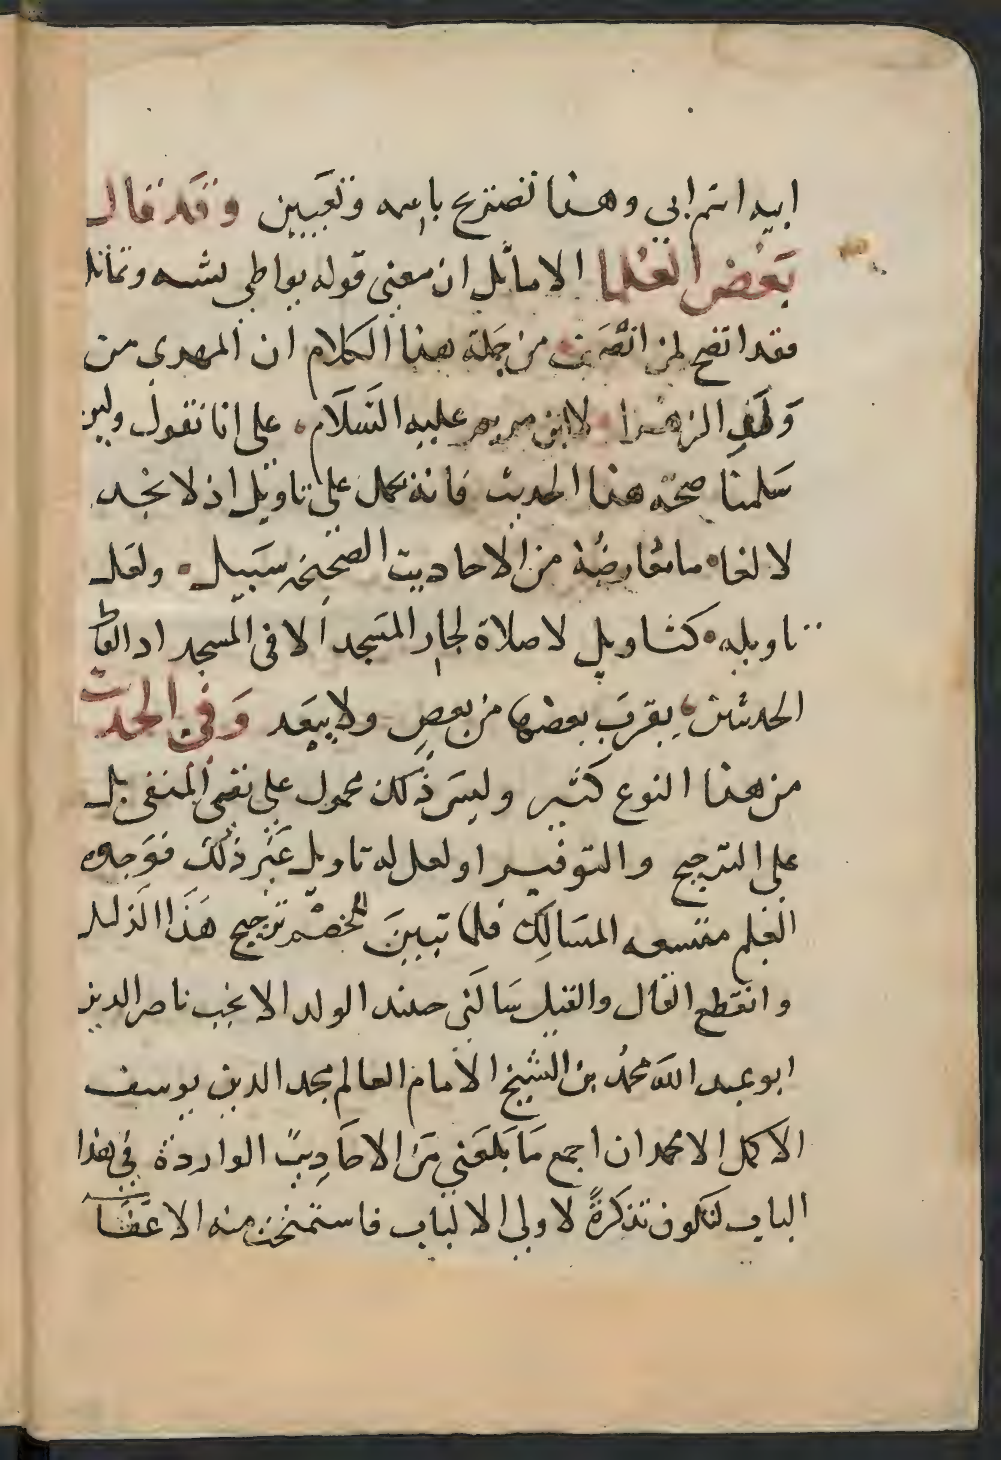 ابيه اسم ابي وهذا تصريح باسمه وتعيين وقد قال
بعض العلما الاماثل ان معنى قوله يواطي يشبه وتماثل
فقد اتضح لمن انصف من جملة هذا الكلام ان المهدي من
ولد الزهرا لا ابن مريم عليه السلام على انا نقول ولين
سلمنا صحة هذا الحديث فانه يحمل على تاويل اذ لا نجد
لالغا ما معارضة من الاحاديث الصحيحه سبيل ولعل
تاويله كتاويل لا صلاة لجار المسجد الا في المسجد اد الفا
الحديثين يقرب بعضها من بعض ولا يبعد وفي الحديث
من هذا النوع كثير وليس ذلك محمول على نفي المنفي بل
على الترجيح والتوقير او لعل له تاويل غير ذلك فوجوه
العلم متسعه المسالك فلما تبين للخصم ترجيح هذا الدليل
وانقطع القال والقيل سالني حينيد الولد الانجب ناصر الدين
ابو عبد الله محمد بن الشيخ الامام العالم مجد الدين يوسف
الاكمل الامجد ان اجمع ما بلغني من الاحاديث الواردة في هذا
الباب لتكون تذكرة لاولي الالباب فاستمنحت منه الاعفا